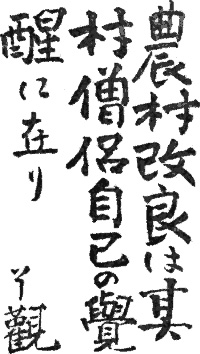 農村改良は其
村僧侶自己の覺
醒に在り
了觀